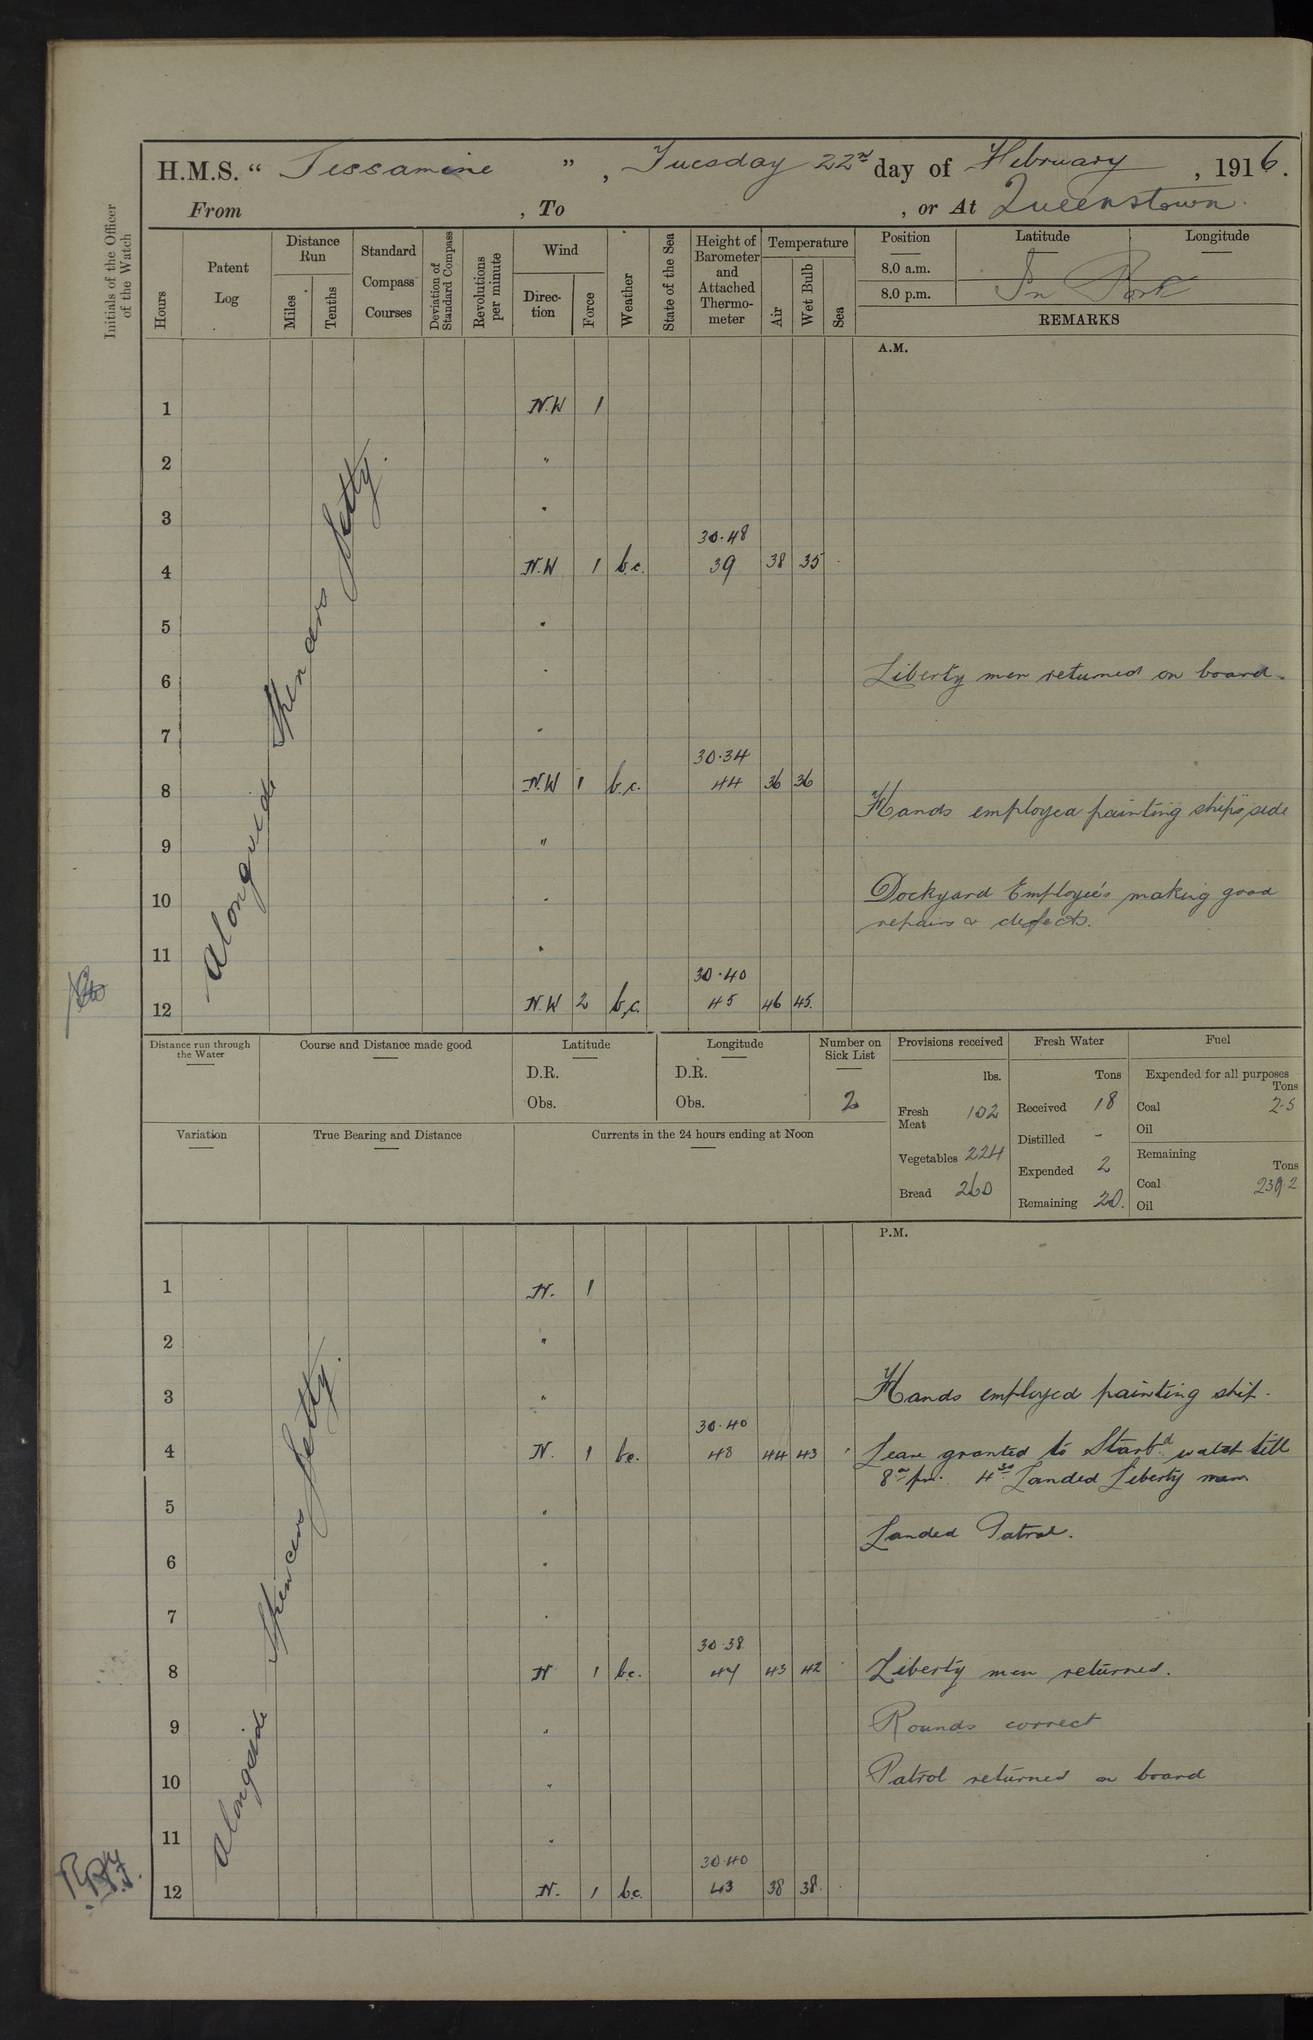 H.M.S. " Jessamine ", Tuesday 22nd day of February, 1916.
From , To , or At Queenstown.
Initials of the Officer of the Watch
Hours
Patent Log
Distance Run
Miles
Tenths
Standard Compass Courses
Deviation of Standard Compass
Revolutions per minute
Wind
Direction
Force
Weather
State of the Sea
Height of Barometer and Attached Thermometer
Temperature
Air
Wet Bulb
Sea
Position
Latitude
Longitude
8.0 a.m.
8.0 p.m.
In Port
REMARKS
A.M.
Alongside Spencers Jetty.
1 N.W 1
2 "
3 "
30.48
4 N.W 1 b.c. 39 38 35
5 "
6 " Liberty men returned on board.
7 "
30.34
8 N.W 1 b.c. 44 36 36
Hands employed painting ships side
9 "
10 " Dockyard Employee's making good
repairs & defects.
11 "
30.40
12 N.W 2 b.c. 45 46 45.
Distance run through the Water
Course and Distance made good
Latitude
D.R.
Obs.
Longitude
D.R.
Obs.
Number on Sick List
2
Provisions received
lbs.
Fresh Meat 102
Vegetables 224
Bread 260
Fresh Water
Tons
Received 18
Distilled -
Expended 2
Remaining 20.
Fuel
Expended for all purposes
Tons
Coal 2.5
Oil
Remaining
Tons
Coal 239.2
Oil
Variation
True Bearing and Distance
Currents in the 24 hours ending at Noon
P.M.
Alongside Spencers Jetty.
1 N. 1
2 "
3 " Hands employed painting ship.
30.40
4 N. 1 b.c. 48 44 43 Leave granted to Starbd watch till
8.0 pm. 4.30 Landed Liberty men
5 "
Landed Patrol.
6 "
7 "
30.38
8 N 1 b.c. 47 43 42 Liberty men returned.
9 " Rounds correct
10 " Patrol returned on board
11 "
30.40
12 N. 1 b.c. 43 38 38.